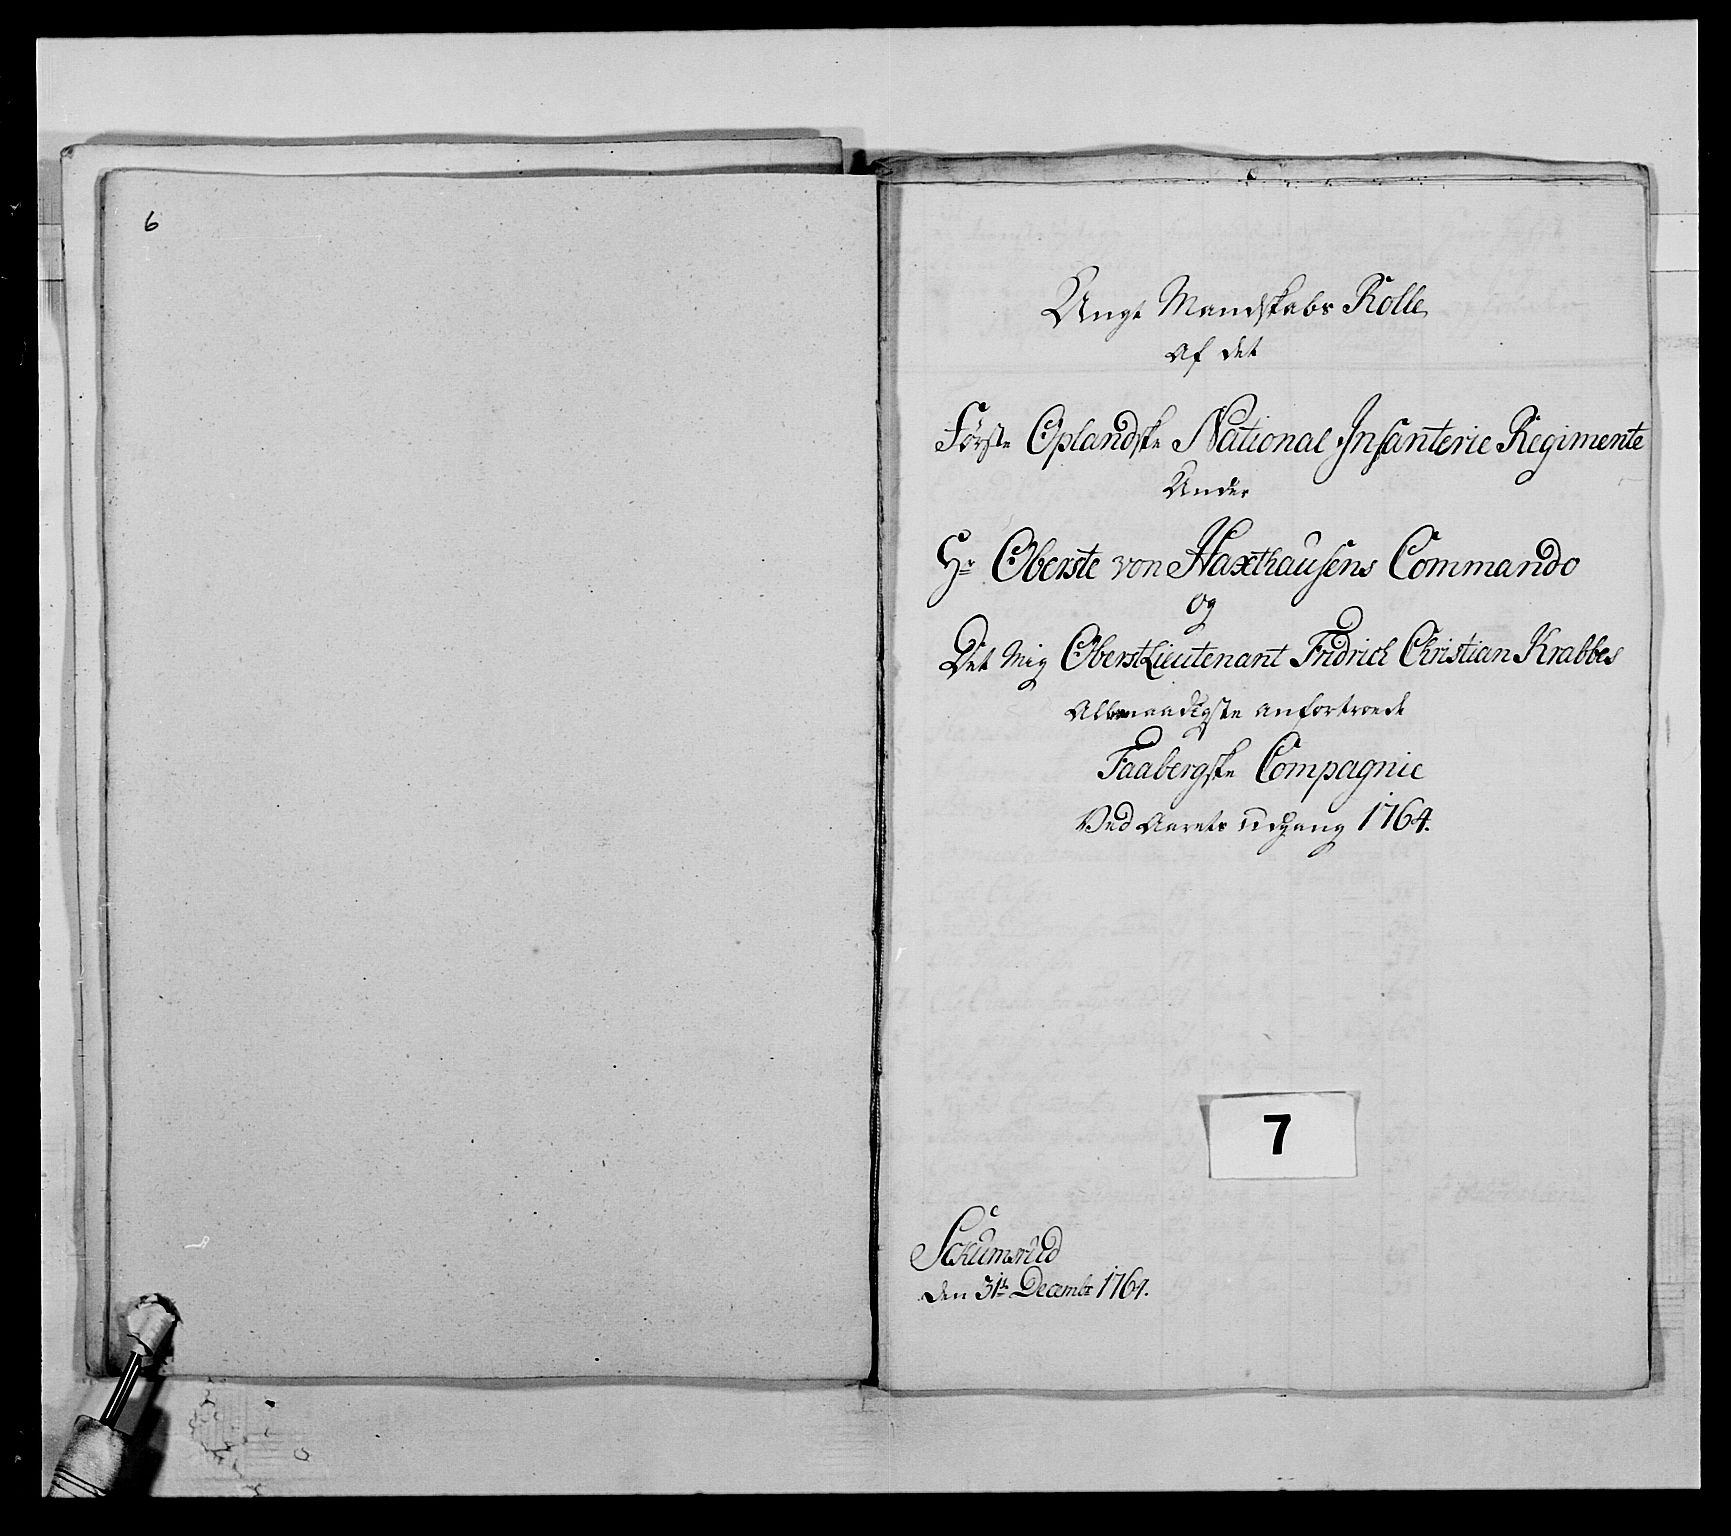 6
Ungt Mandskabs Rolle
Af det
Første Oplandske National Infanterie Regimente
Under
Hr Oberste von Haxthausens Commando
og
Det mig OberstLieutenant Fridrich Christian Krabbes
Allernaadigste anfortroede
Faabergske Compagnie
Ved Aarets Udgang 1764.
7
Schumsrud
den 31te Decembr 1764.